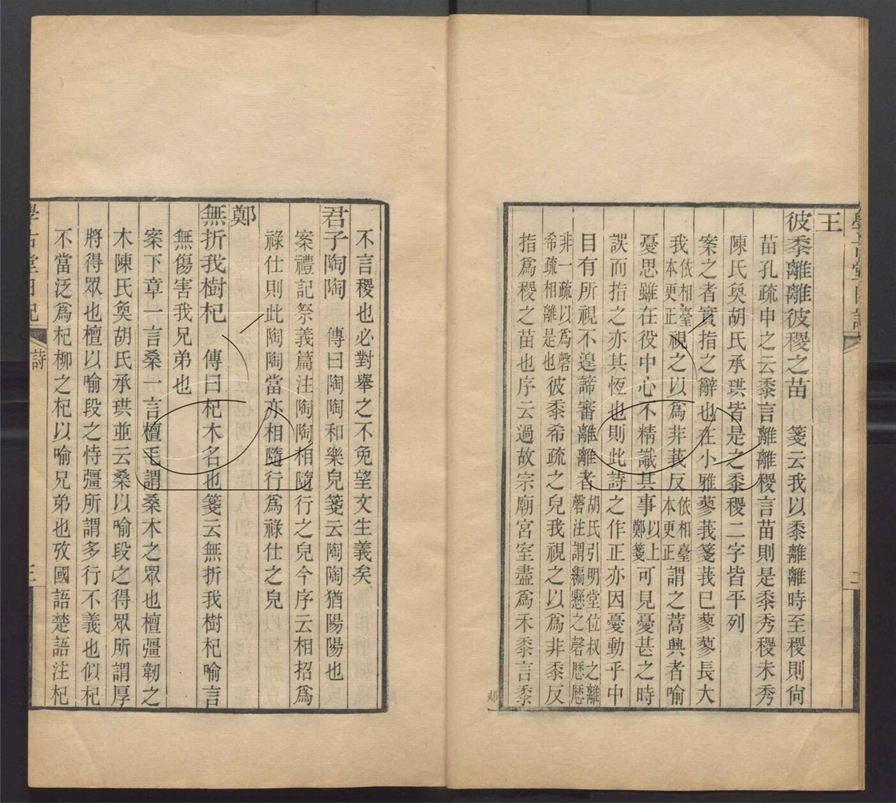 王
彼黍離離彼稷之苗　箋云我以黍離離時至稷則尙
苗孔疏申之云黍言離離稷言苗則是黍秀稷未秀
陳氏奐胡氏承珙皆是之黍稷二字皆平列
案之者實指之辭也在小雅蓼莪箋莪巳蓼蓼長大
我依相臺本更正視之以爲非莪反依相臺本更正謂之蒿興者喻
憂思雖在役中心不精識其事以上鄭箋可見憂甚之時
誤而指之亦其恆也則此詩之作正亦因憂動乎中
目有所視不遑諦審離離者胡氏引明堂位叔之離磬注謂編懸之磬厯厯
非一疏以爲磬希疏相離是也彼黍希疏之皃我視之以爲非黍反
指爲稷之苗也序云過故宗廟宮室盡爲禾黍言黍
不言稷也必對舉之不免望文生義矣
君子陶陶　傳曰陶陶和樂皃箋云陶陶猶陽陽也
案禮記祭義篇注陶陶相隨行之皃今序云相招爲
祿仕則此陶陶當亦相隨行爲祿仕之皃
鄭
無折我樹杞　傳曰杞木名也箋云無折我樹杞喻言
無傷害我兄弟也
案下章一言桑一言檀毛謂桑木之眾也檀彊韌之
木陳氏奐胡氏承珙並云桑以喻段之得眾所謂厚
將得眾也檀以喻段之恃彊所謂多行不義也似杞
不當泛爲杞柳之杞以喻兄弟也攷國語楚語注杞
學古堂日記　詩　三